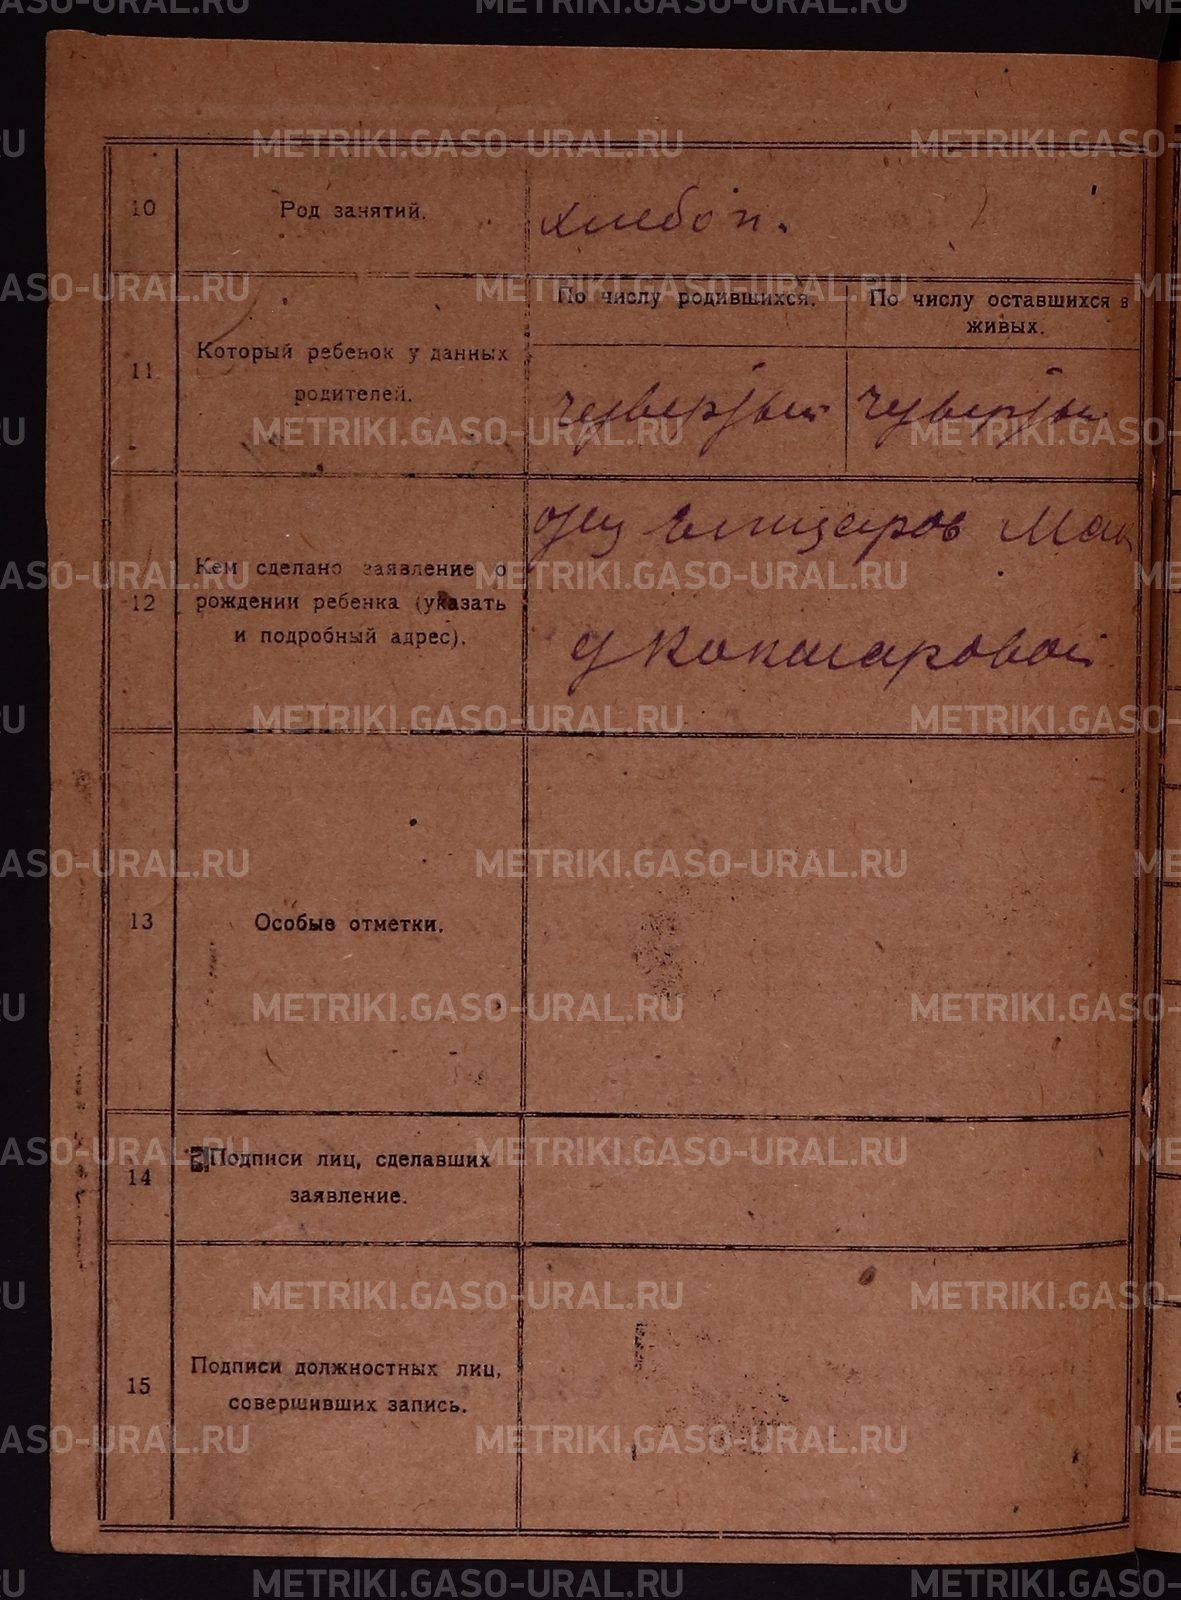 10
Род занятий.
хлебоп.
11
Который ребенок у данных
родителей.
По числу родившихся.
По числу оставшихся в
живых.
четвертый
четвертый
12
Кем сделано заявление о
рождении ребенка (указать
и подробный адрес).
отец Елизаров Мак
д Кокшаровой
13
Особые отметки.
14
Подписи лиц, сделавших
заявление.
15
Подписи должностных лиц,
совершивших запись.
METRIKI.GASO-URAL.RU